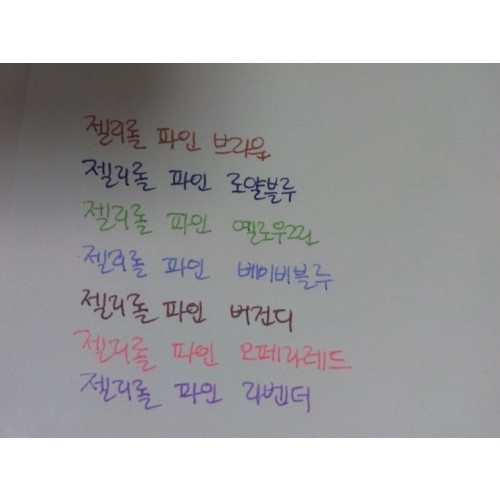 젤리롤 파인 브라운
젤리롤 파인 로얄블루
젤리롤 파인 옐로우그린
젤리롤 파인 베이비블루
젤리롤 파인 버건디
젤리롤 파인 오페라레드
젤리롤 파인 라벤더